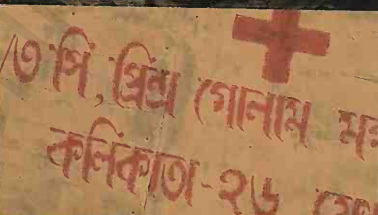 /৩ পি, প্রিন্স গোলাম
কলিকাতা-২৬